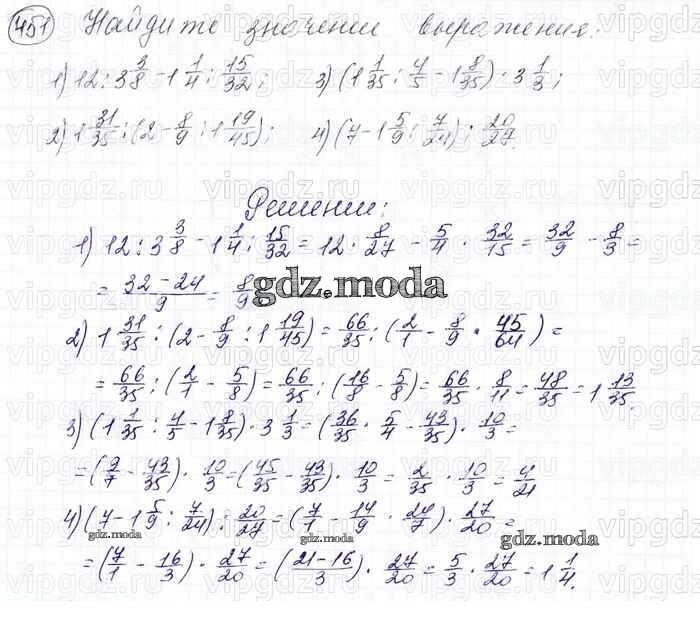 451 Найдите значении выражения:
1) 12 : 3 3/8 - 1 1/4 : 15/32; 3) (1 1/35 : 4/5 - 1 8/35) · 3 1/3;
2) 1 31/35 : (2 - 8/9 : 1 19/45); 4) (7 - 1 5/9 : 7/24) : 20/27.
Решении:
1) 12 : 3 3/8 - 1 1/4 : 15/32 = 12 · 8/27 - 5/4 · 32/15 = 32/9 - 8/3 =
= 32-24/9 = 8/9
gdz.moda
2) 1 31/35 : (2 - 8/9 : 1 19/45) = 66/35 : (2/1 - 8/9 · 45/64) =
= 66/35 : (2/1 - 5/8) = 66/35 : (16/8 - 5/8) = 66/35 · 8/11 = 48/35 = 1 13/35.
3) (1 1/35 : 4/5 - 1 8/35) · 3 1/3 = (36/35 · 5/4 - 43/35) · 10/3 =
= (9/7 - 43/35) · 10/3 = (45/35 - 43/35) · 10/3 = 2/35 · 10/3 = 4/21
4) (7 - 1 5/9 : 7/24) : 20/27 = (7/1 - 14/9 · 24/7) · 27/20 =
gdz.moda gdz.moda
= (7/1 - 16/3) · 27/20 = (21-16/3) · 27/20 = 5/3 · 27/20 = 1 1/4.